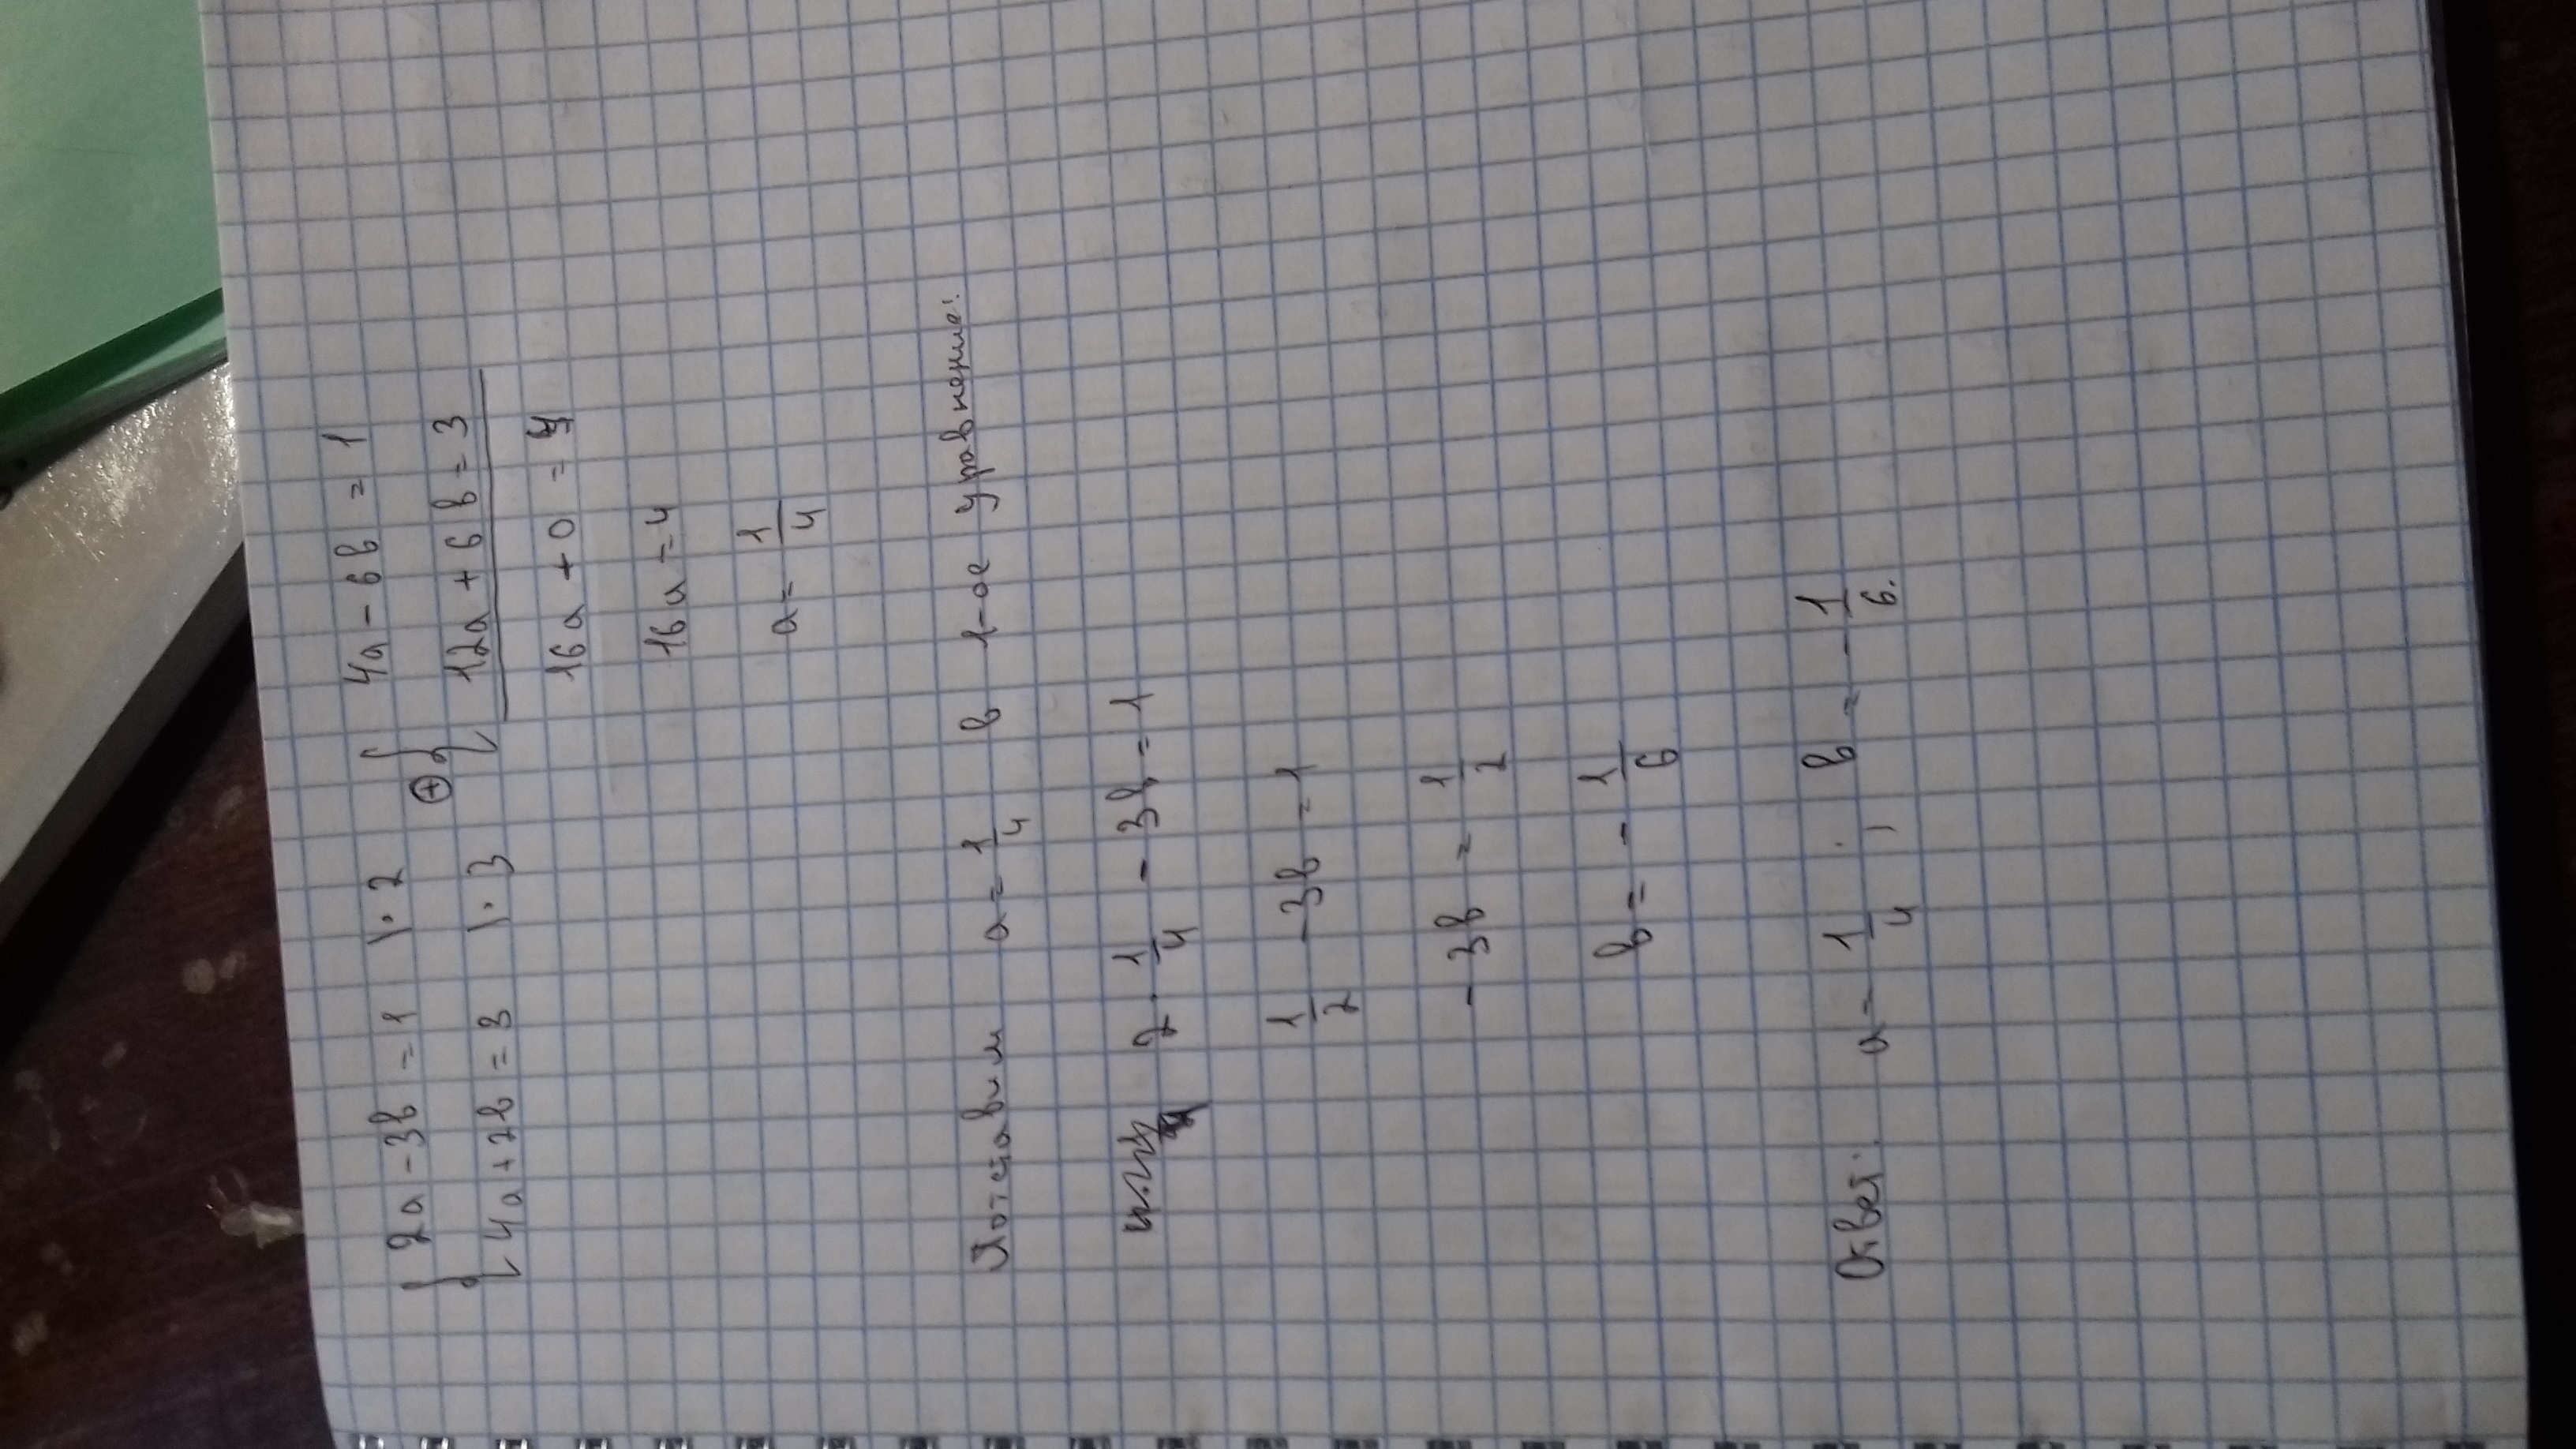 2a - 3b = 1 | · 2 4a - 6b = 1
4a + 2b = 3 | · 3 ⊕ 12a + 6b = 3
16a + 0 = 4
16a = 4
a = 1/4
Потставим a = 1/4 в 1-ое уравнение:
2 · 1/4 - 3b = 1
1/2 - 3b = 1
- 3b = 1/2
b = - 1/6
Ответ: a = 1/4 ; b = - 1/6.